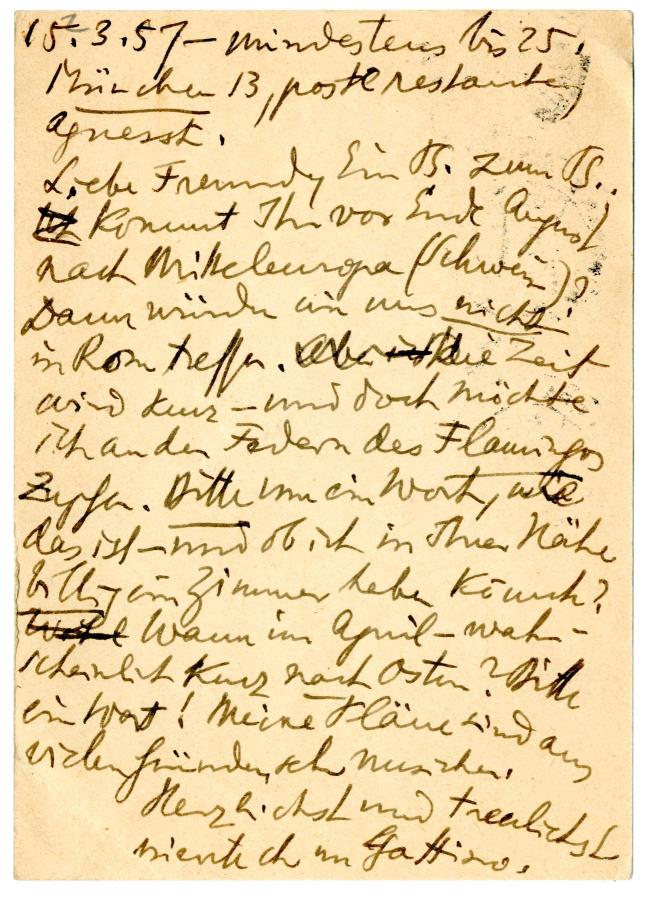 15.3.57 – mindestens bis 25.
München 13, poste restante,
Agnesstr.
Liebe Freundin, Ein B. zum B.:
Kommt Ihr vor Ende August
nach Mitteleuropa (Schweiz)?
Dann würden wir uns nicht
in Rom treffen. Aber die Zeit
wird kurz – und doch möchte
ich an den Federn des Flamingos
zupfen. Bitte um ein Wort, wie
das ist – und ob ich in Ihrer Nähe
billig ein Zimmer haben könnte?
Wann im April – wahr-
scheinlich kurz nach Ostern? Bitte
ein Wort! Meine Pläne sind aus
vielen Gründen sehr unsicher.
Herzlichst und treulichst
Gattino.